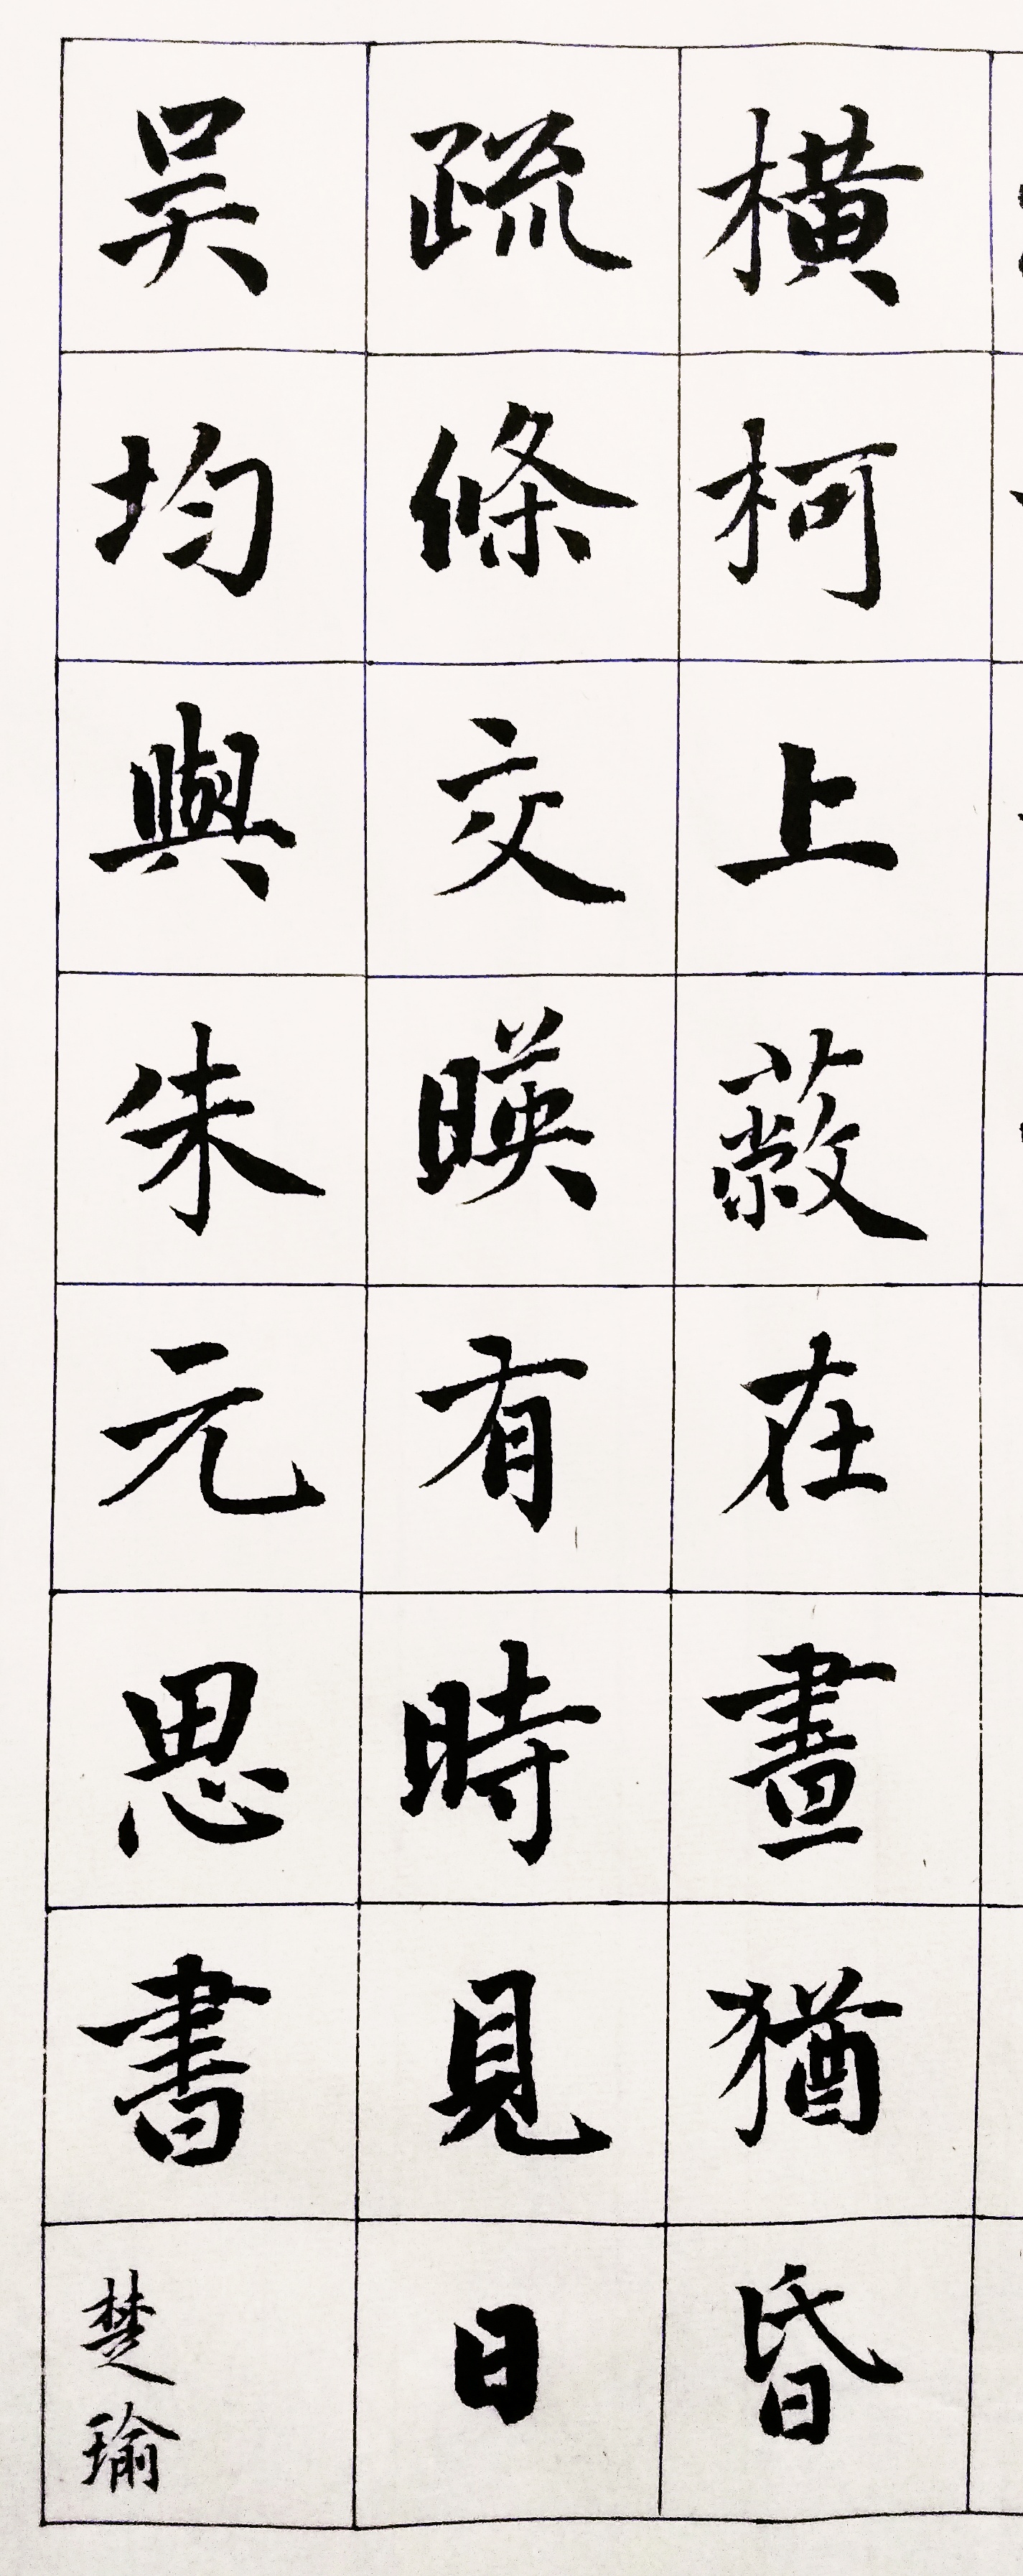 橫柯上蔽在晝猶昏
疏條交暎有時見日
吳均與朱元思書
楚瑜